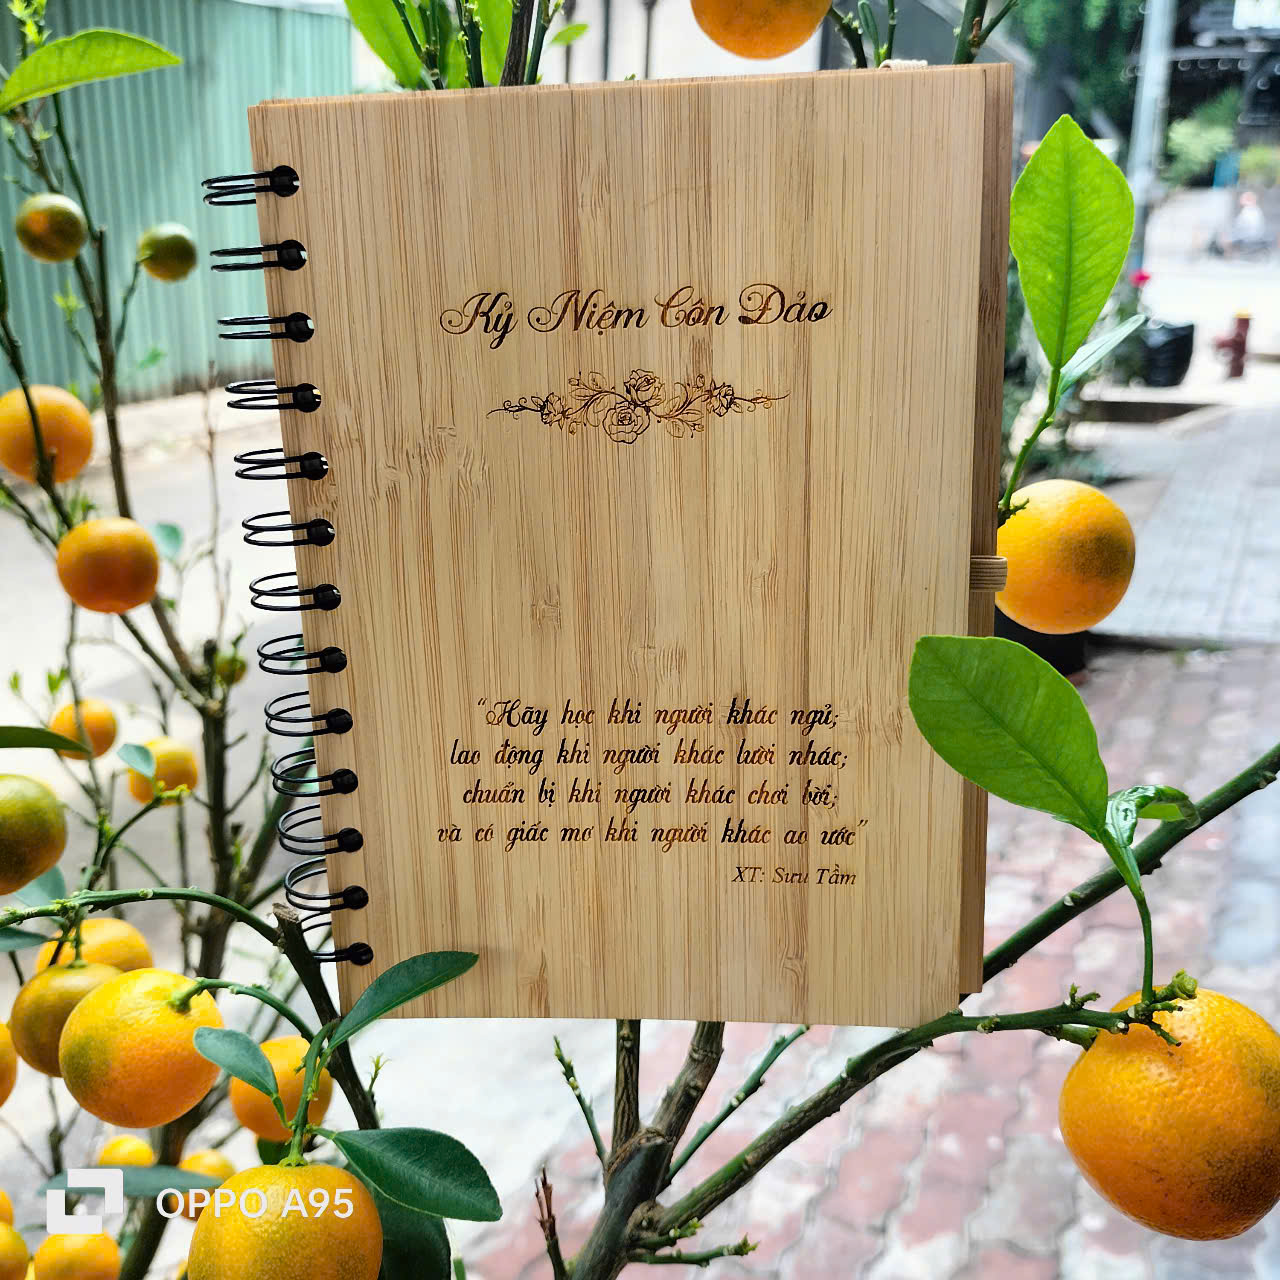 Kỷ Niệm Côn Đảo
“Hãy học khi người khác ngủ;
lao động khi người khác lười nhác;
chuẩn bị khi người khác chơi bời;
và có giấc mơ khi người khác ao ước”
XT: Sưu Tầm
OPPO A95